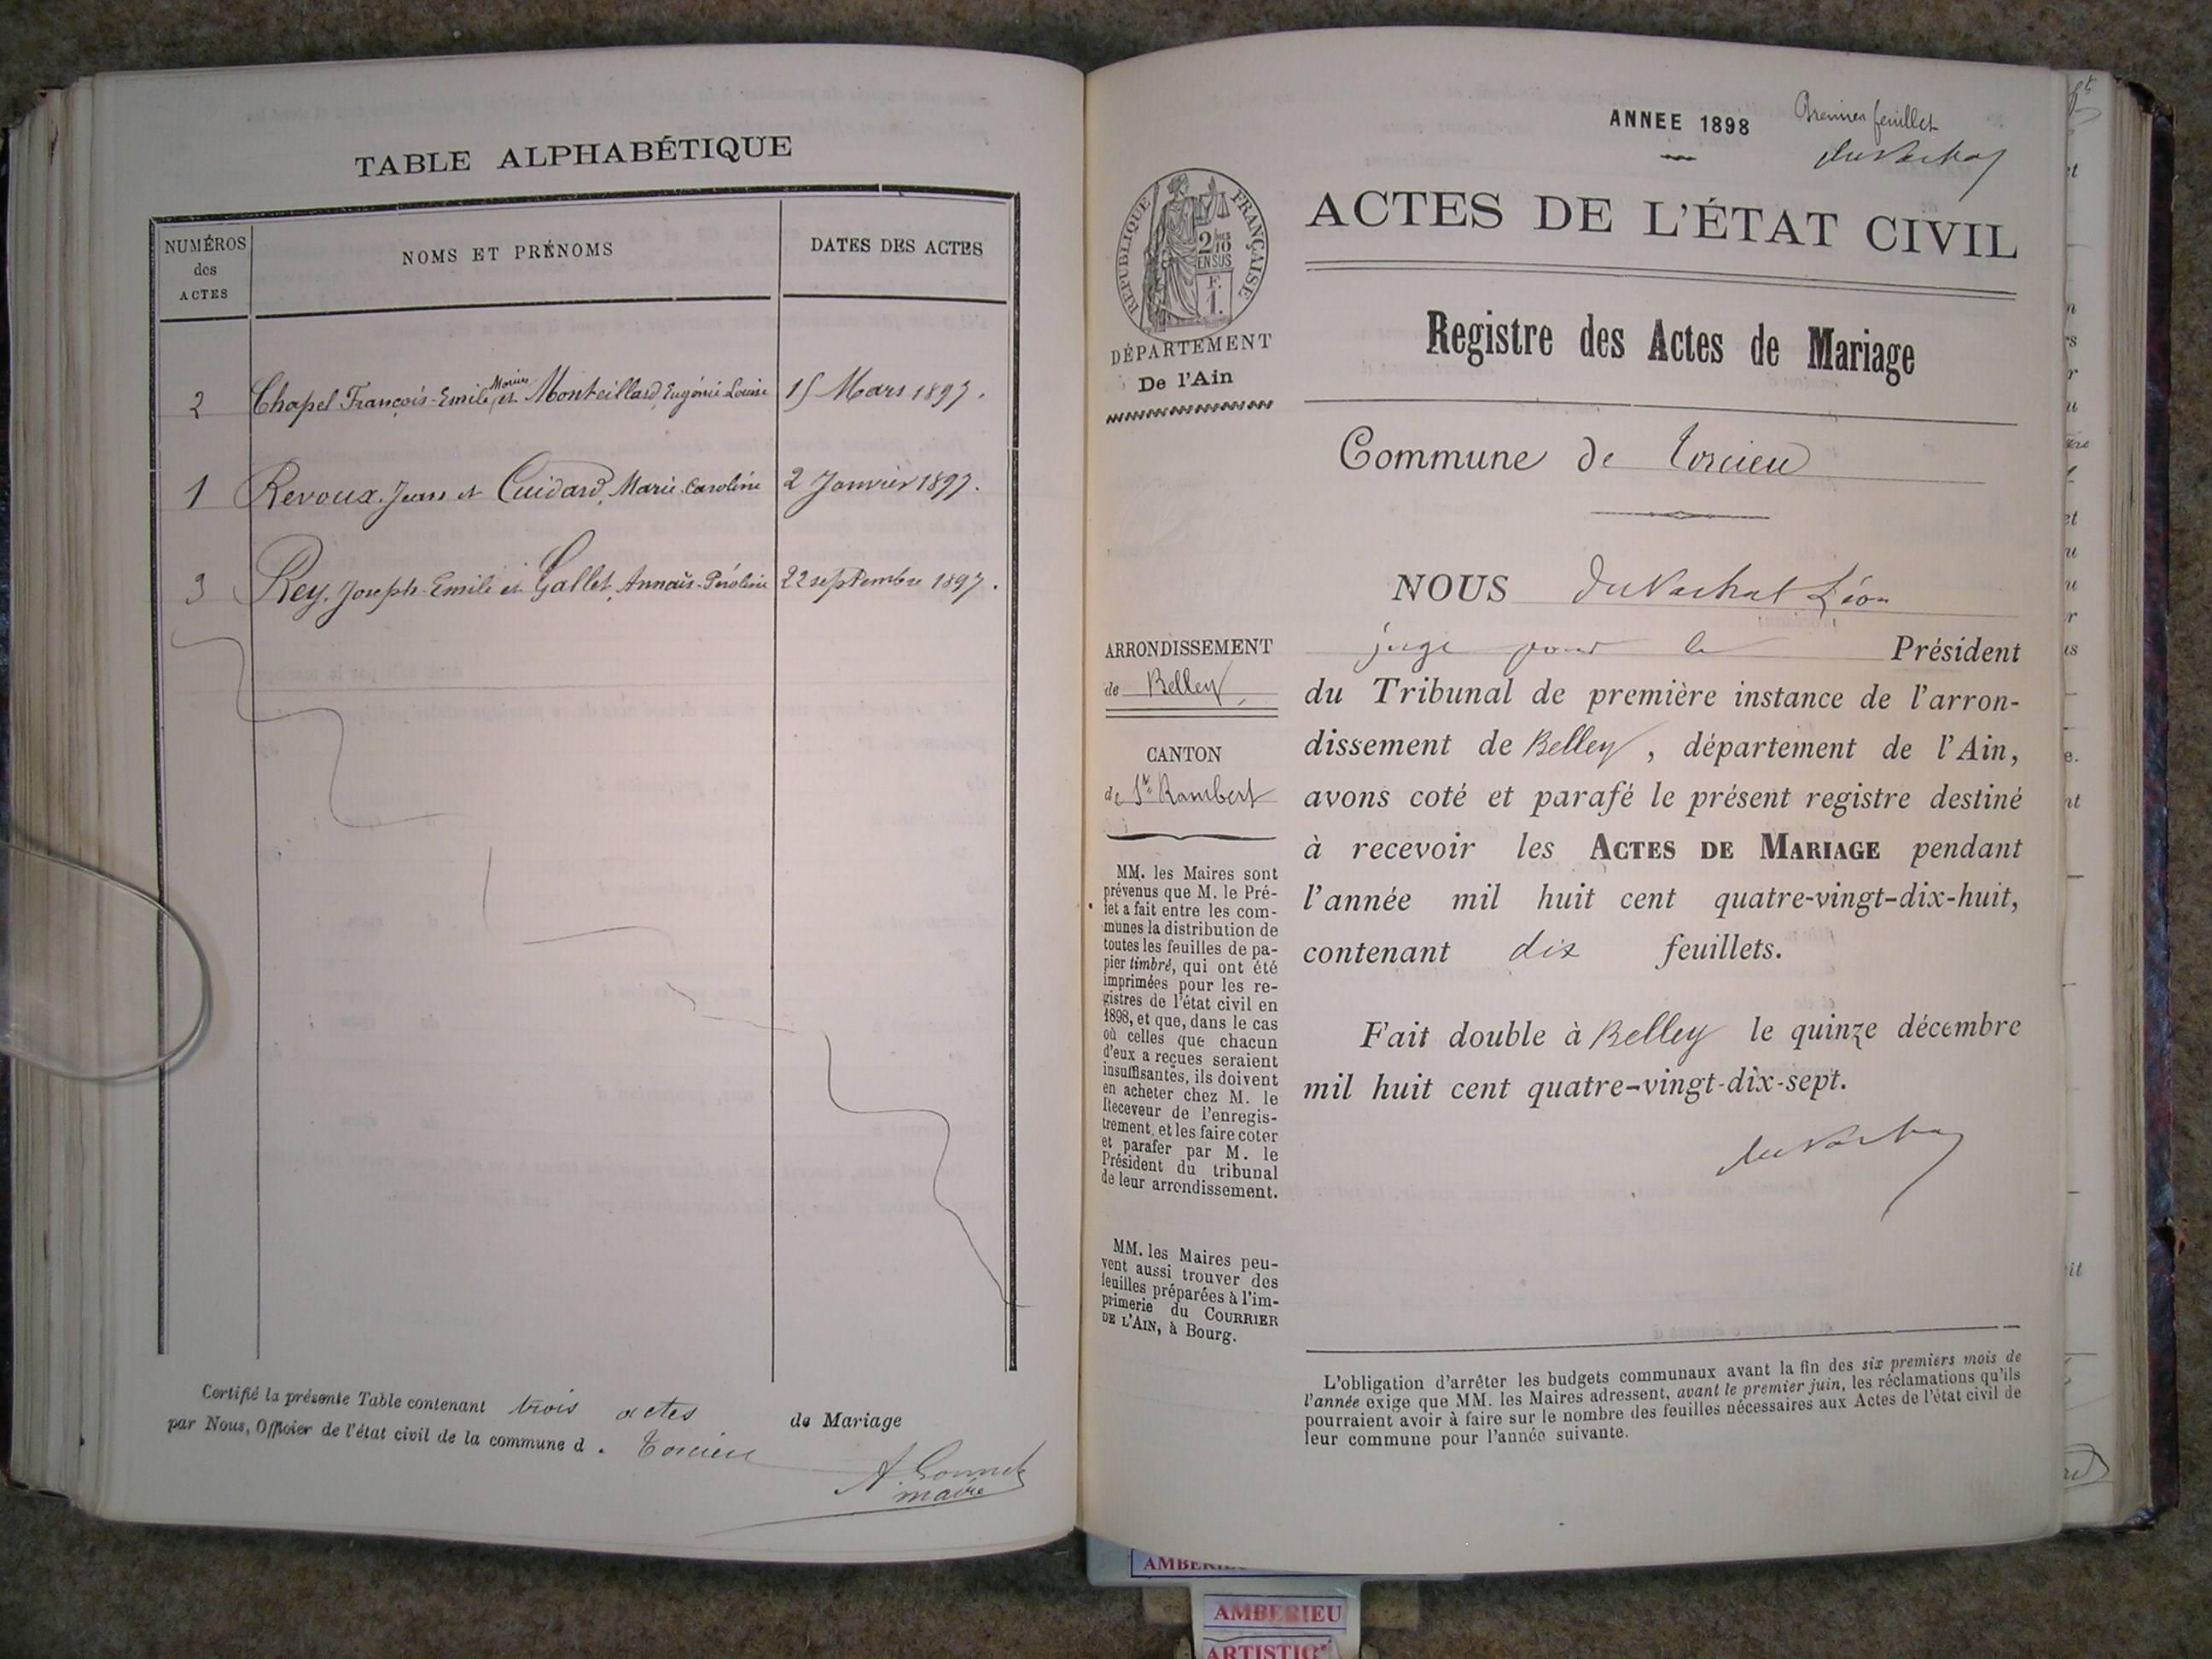 TABLE ALPHABÉTIQUE
NUMÉROS
des
ACTES
NOMS ET PRÉNOMS
DATES DES ACTES
2 Chapel François-Emile Marius et Monteillard Eugénie Louise 15 Mars 1897.
1 Revoux Jean et Cuidard, Marie-Caroline 2 Janvier 1897.
3 Rey, Joseph-Emile et Gallet, Annaïs-Péroline 22 septembre 1897.
Certifié la présente Table contenant trois actes de Mariage
par Nous, Officier de l'état civil de la commune d. Torcieu
A. Bonnet
maire
ANNEE 1898
Premier feuillet
duVachat
ACTES DE L'ÉTAT CIVIL
RÉPUBLIQUE FRANÇAISE
2/10
EN SUS
F.
1.
DÉPARTEMENT
De l'Ain
Registre des Actes de Mariage
Commune de Torcieu
NOUS duVachat Léon
juge pour le Président
du Tribunal de première instance de l'arron-
dissement de Belley, département de l'Ain,
avons coté et parafé le présent registre destiné
à recevoir les ACTES DE MARIAGE pendant
l'année mil huit cent quatre-vingt-dix-huit,
contenant dix feuillets.
Fait double à Belley le quinze décembre
mil huit cent quatre-vingt-dix-sept.
duVachat
ARRONDISSEMENT
de Belley
CANTON
de St Rambert
MM. les Maires sont
prévenus que M. le Pré-
fet a fait entre les com-
munes la distribution de
toutes les feuilles de pa-
pier timbré, qui ont été
imprimées pour les re-
gistres de l'état civil en
1898, et que, dans le cas
où celles que chacun
d'eux a reçues seraient
insuffisantes, ils doivent
en acheter chez M. le
Receveur de l'enregis-
trement, et les faire coter
et parafer par M. le
Président du tribunal
de leur arrondissement.
MM. les Maires peu-
vent aussi trouver des
feuilles préparées à l'im-
primerie du COURRIER
DE L'AIN, à Bourg.
L'obligation d'arrêter les budgets communaux avant la fin des six premiers mois de
l'année exige que MM. les Maires adressent, avant le premier juin, les réclamations qu'ils
pourraient avoir à faire sur le nombre des feuilles nécessaires aux Actes de l'état civil de
leur commune pour l'année suivante.
AMBERIEU
ARTISTIC